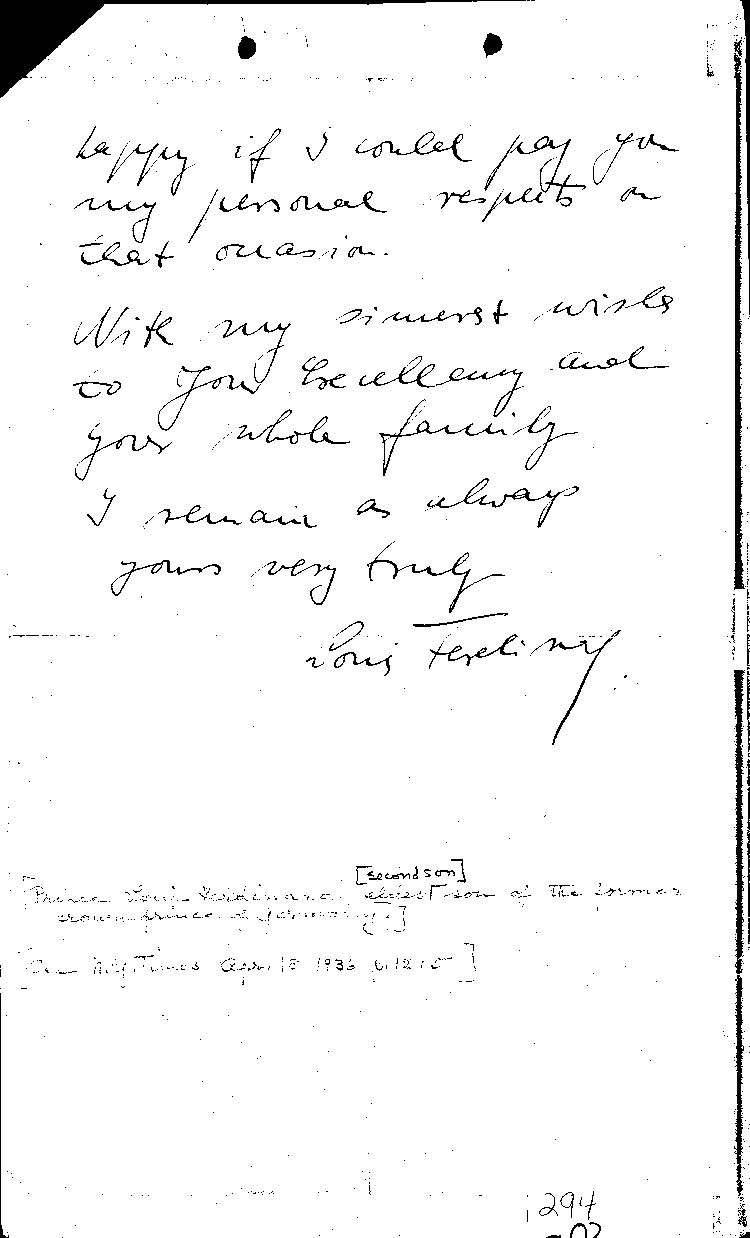 happy if I could pay you
my personal respects on
that occasion.
With my sincerest wishes
to Your Excellency and
your whole family
I remain as always
yours very truly
Louis Ferdinand
[second son]
[Prince Louis Ferdinand, eldest son of the former
crown prince of Germany.]
N.Y. Times April 8 1936 p. 12
294